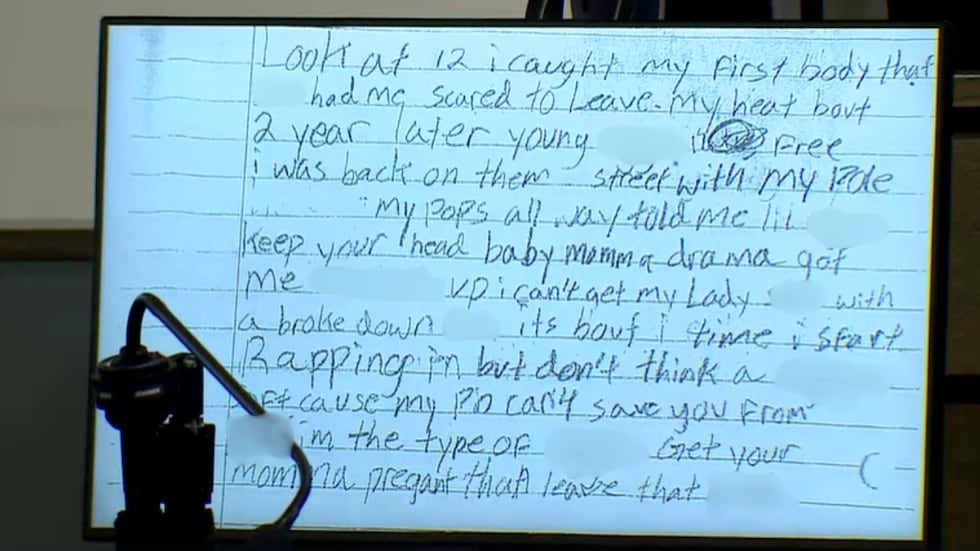 Look at 12 i caught my first body that
had me scared to leave. my heat bout
2 year later young Free
i was back on them street with my Pole
my pops all way told me lil
keep your head baby momma drama got
me up i can't get my Lady with
a broke down its bout i time i start
Rapping in but don't think a
cause my PO can't save you From
im the type of Get your
momma pregant that leave that